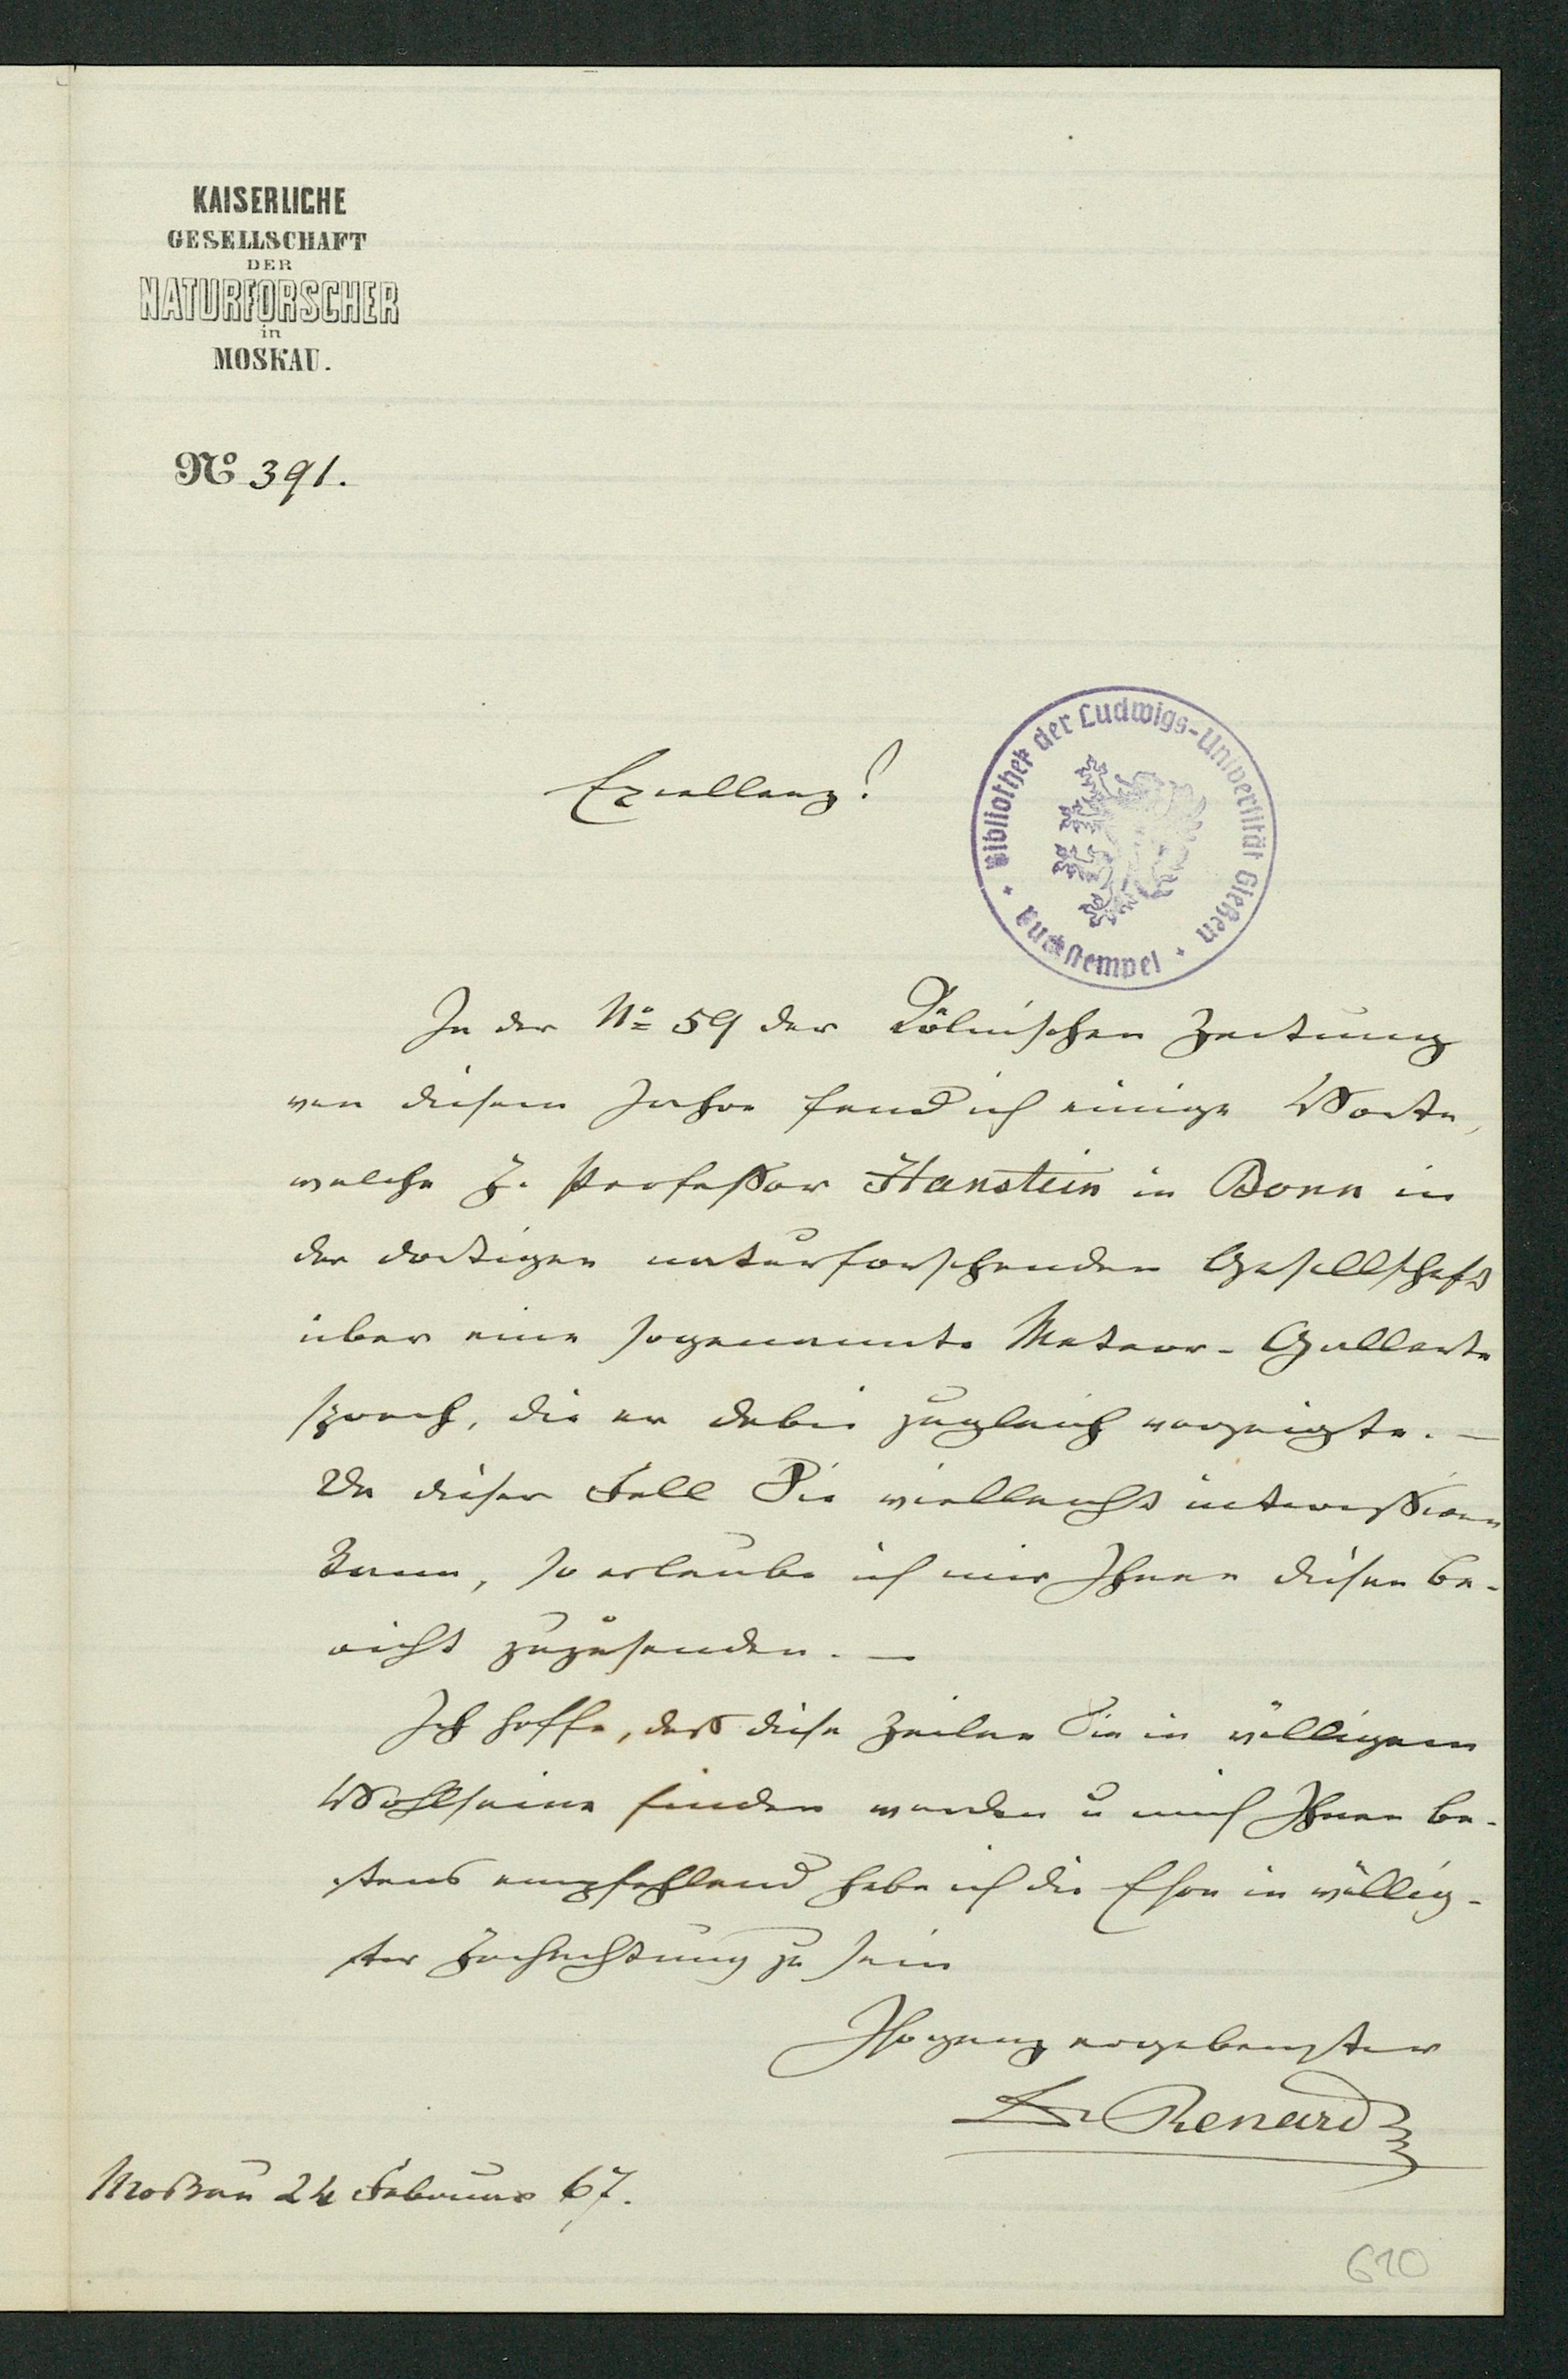 KAISERLICHE
GESELLSCHAFT
DER
NATURFORSCHER
in
MOSKAU.
No 391.
Excellenz!
Bibliothek der Ludwigs-Universität Gießen
Buchstempel
In der No 59 der Kölnischen Zeitung
von diesem Jahre fand ich einige Worte,
welche H. Professor Hanstein in Bonn in
der dortigen naturforschenden Gesellschaft
über eine sogenannte Meteor-Gallerte
sprach, die er dabei zugleich vorzeigte. —
Da dieser Fall Sie vielleicht interessiren
kann, so erlaube ich mir Ihnen diesen Be-
richt zuzusenden. —
Ich hoffe, daß diese Zeilen Sie in völligem
Wohlseine finden werden u mich Ihnen be-
stens empfehlend habe ich die Ehre in völlig-
ster Hochachtung zu sein
Ihr ganz ergebenster
Dr Renard
Moskau 24 Februar 67.
610